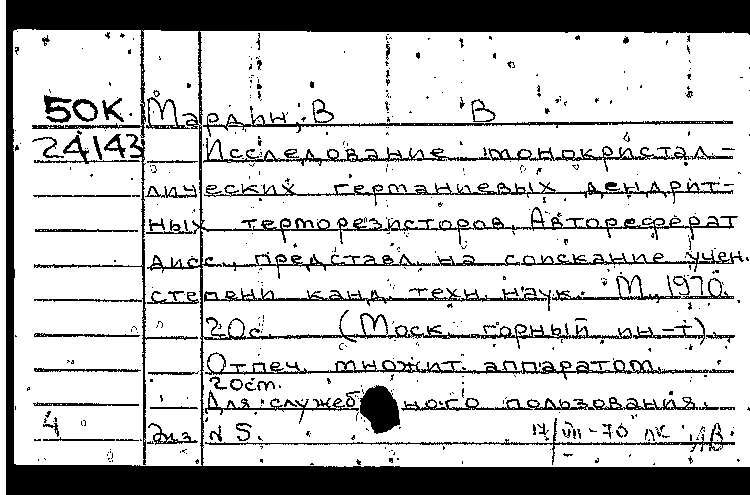 50К. Мардин, В В
24143 Исследование монокристал-
лических германиевых дендрит-
ных терморезисторов. Автореферат
дисс., представл. на соискание учен.
степени канд. техн. наук. М., 1970.
20с. (Моск. горный ин-т).
Отпеч. множит. аппаратом.
20ст.
Для служебного пользования.
4 Экз N 5. 17/VIII-70 ЛК